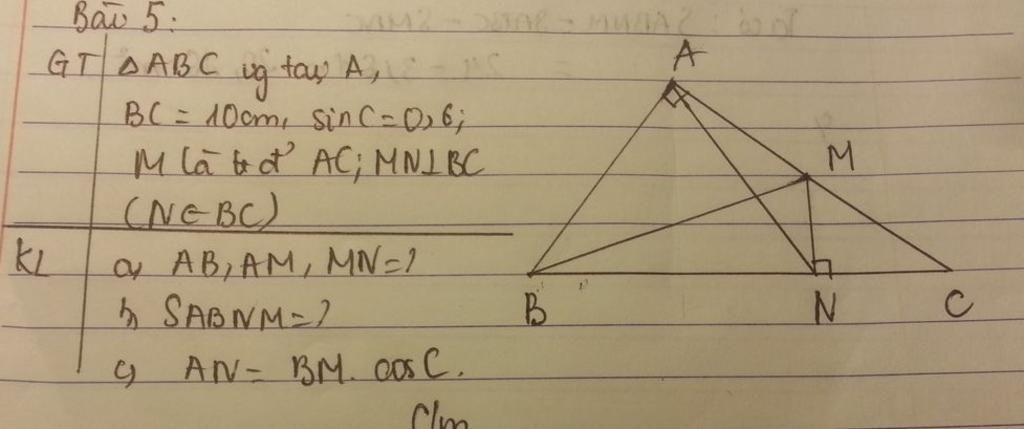 Bài 5:
GT ΔABC vg tại A,
BC = 10cm, sinC = 0,6;
M là trđ' AC; MN⊥BC
(N∈BC)
KL a, AB, AM, MN = ?
b, SABNM = ?
c, AN = BM. cosC.
C/m
A
M
B
N
C